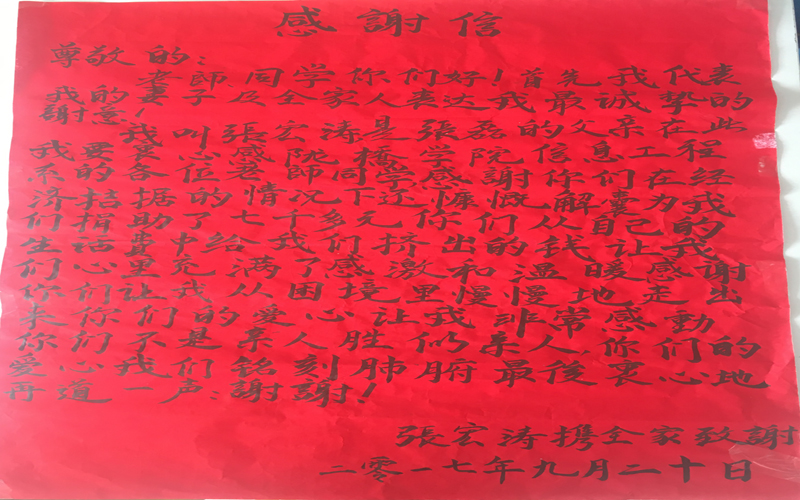 感謝信
尊敬的：
老師同学你们好！首先我代表
我的妻子及全家人表达我最诚挚的
謝意！
我叫张宏涛是張磊的父亲在此
我要衷心感陇橋学院信息工程
系的各位老師同学感謝你们在经
济拮据的情况下还慷慨解囊为我
们捐助了七千多元你们从自己的
生活費中给我们挤出的钱让我
们心里充满了感激和温暖感谢
你们让我从困境里慢慢地走出
来你们的爱心让我非常感動
你们不是亲人胜似亲人，你们的
爱心我们铭刻肺腑最後衷心地
再道一声：謝謝！
張宏涛携全家致謝
二零一七年九月二十日